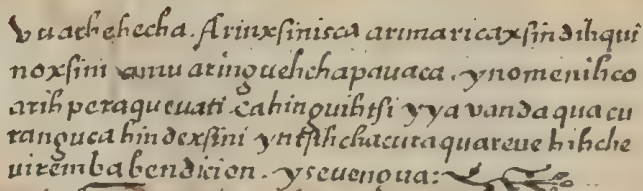 vuache hecha. Arinxsinisca arimaricaxsin dihqui
noxsini amu aringuehchapauaca. ynomenihco
arih peraqueuati. cahinguihtsi yya vandaquacu
ranguca hindexsini yntsihchacutaquareue hihche
uiremba bendicion. yseuengua: